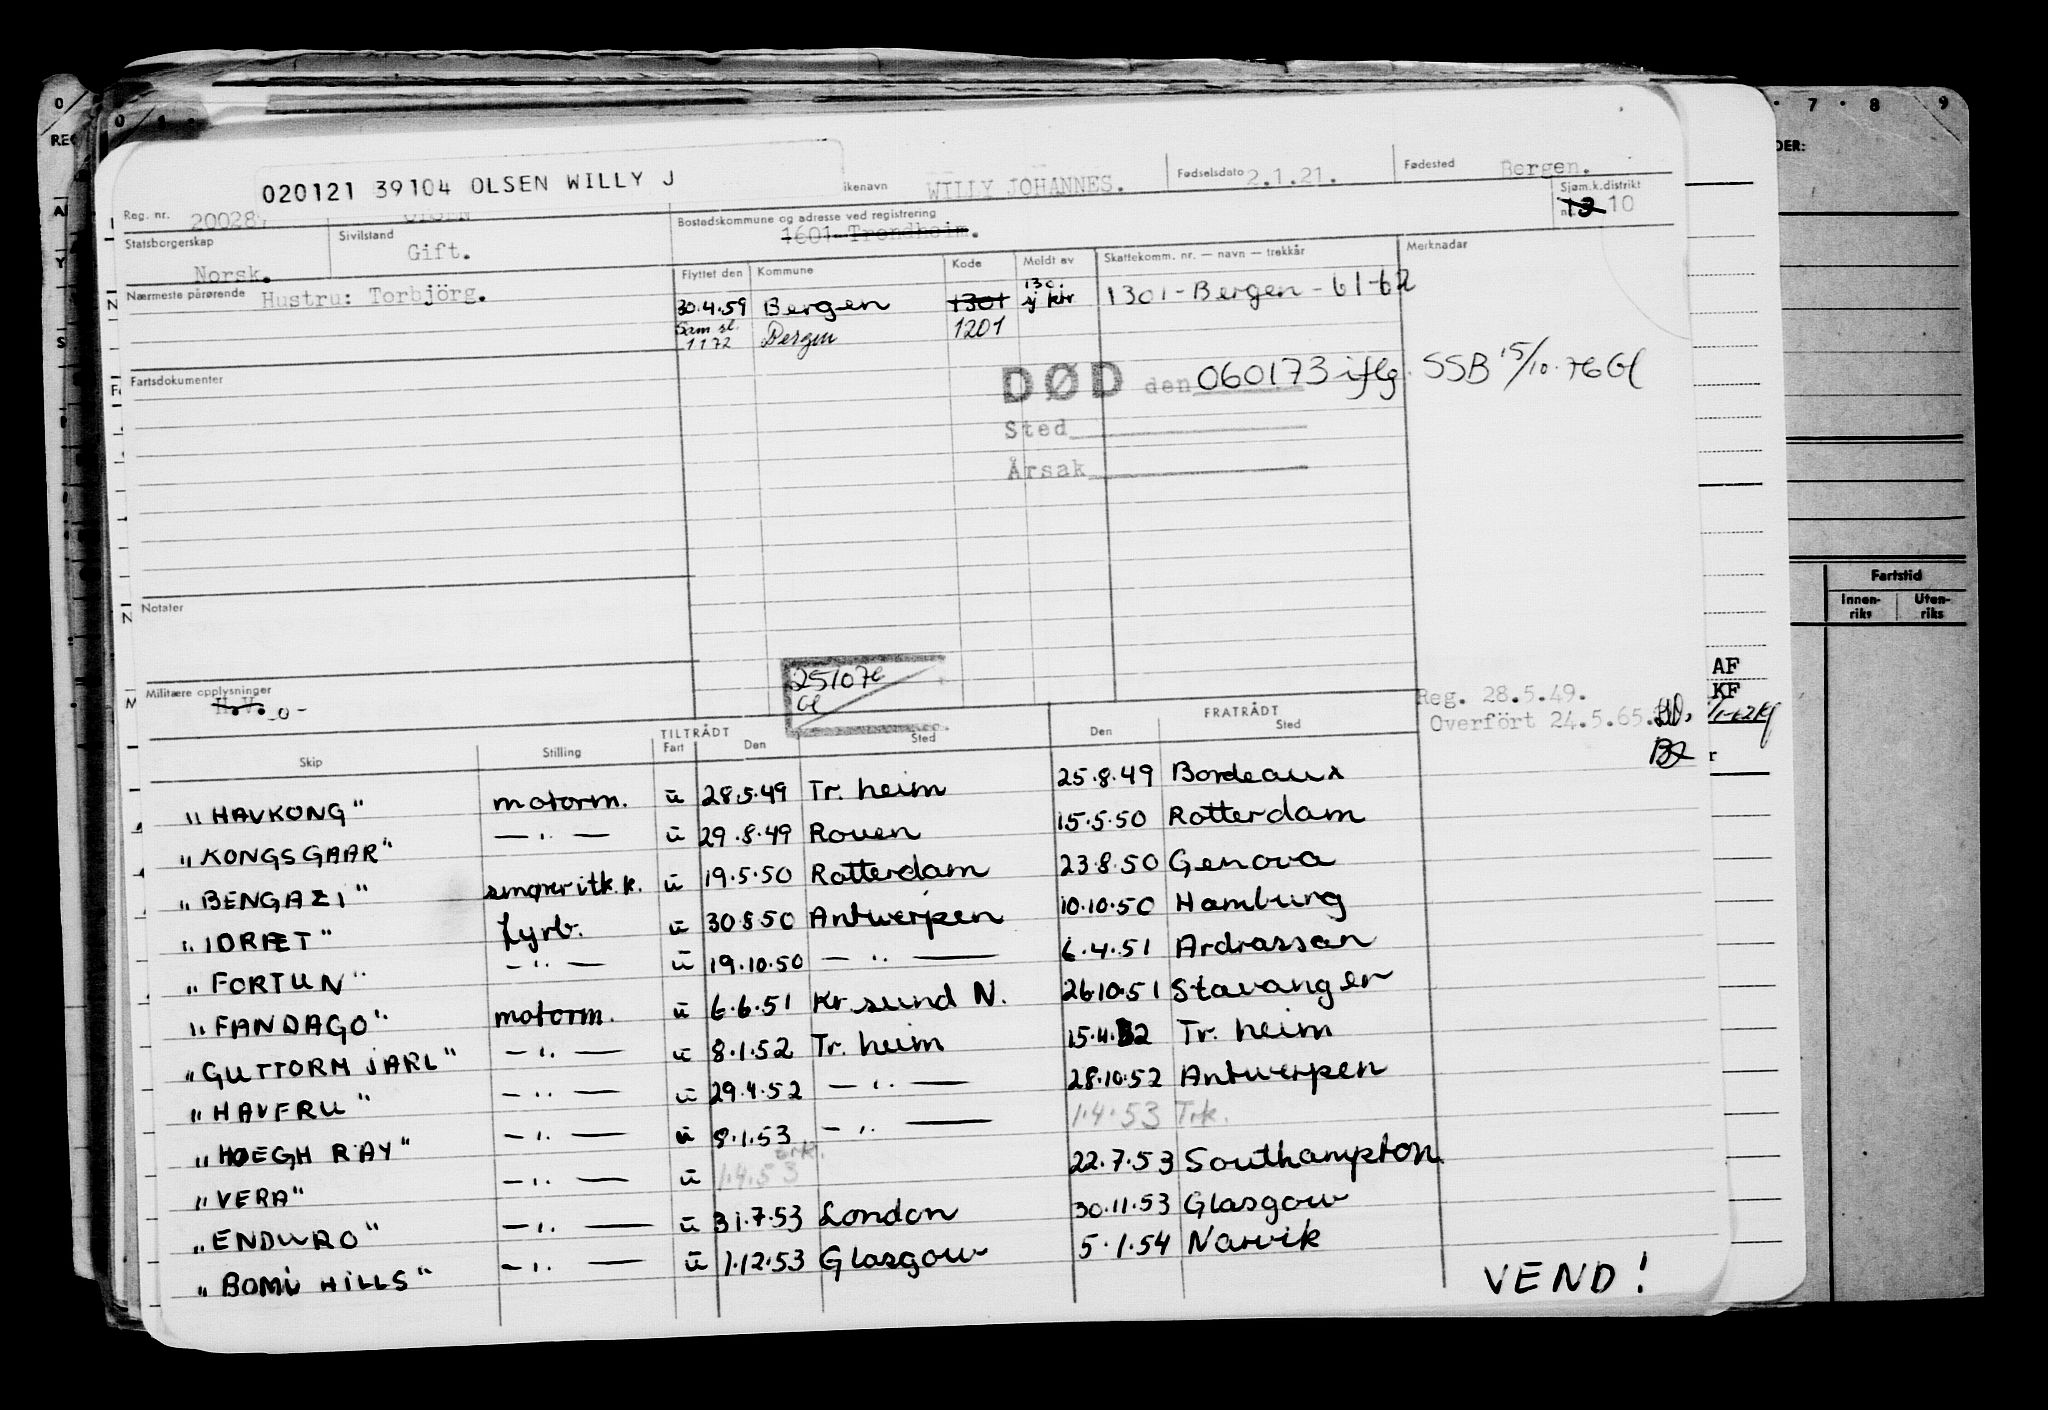 020121 39104 OLSEN WILLY J
ikenavn WILLY JOHANNES.
Fødselsdato 2.1.21.
Fødested Bergen.
Reg. nr. 20028
Bostedskommune og adresse ved registrering
1601 Trondheim.
Sjøm.k.distrikt nr. 13 10
Statsborgerskap Norsk.
Sivilstand Gift.
Flyttet den Kommune Kode Meldt av Skattekomm. nr. — navn — trekkår Merknader
Nærmeste pårørende Hustru: Torbjörg.
30.4.59 Bergen 1301 1301-Bergen-61-62
Sam sl. 1 1 72 Bergen 1201
DØD den 060173 iflg. SSB 15/10.76 Gl
Sted
Årsak
Fartsdokumenter
Notater
Militære opplysninger
H.V. -o-
Reg. 28.5.49.
Overfört 24.5.65.
TILTRÅDT FRATRÅDT
Skip Stilling Fart Den Sted Den Sted
"HAVKONG" motorm. u 28.5.49 Tr. heim 25.8.49 Bordeaux
"KONGSGAAR" — " — u 29.8.49 Rouen 15.5.50 Rotterdam
"BENGAZI" smører itk.k. u 19.5.50 Rotterdam 23.8.50 Genova
"IDRÆT" Fyrb. u 30.8.50 Antwerpen 10.10.50 Hamburg
"FORTUN" — " — u 19.10.50 — " — 6.4.51 Ardrassan
"FANDAGO" motorm. u 6.6.51 Kr. sund N. 26.10.51 Stavanger
"GUTTORM JARL" — " — u 8.1.52 Tr. heim 15.4.52 Tr. heim
"HAVFRU" — " — u 29.4.52 — " — 28.10.52 Antwerpen
"HOEGH RAY" — " — u 8.1.53 — " — 1.4.53 Trk.
"VERA" — " — u 1.4.53 22.7.53 Southampton
"ENDURO" — " — u 31.7.53 London 30.11.53 Glasgow
"BOMI HILLS" — " — u 1.12.53 Glasgow 5.1.54 Narvik
VEND!
7 8 9
DER:
Fartstid
Innen-riks Uten-riks
AF
KF